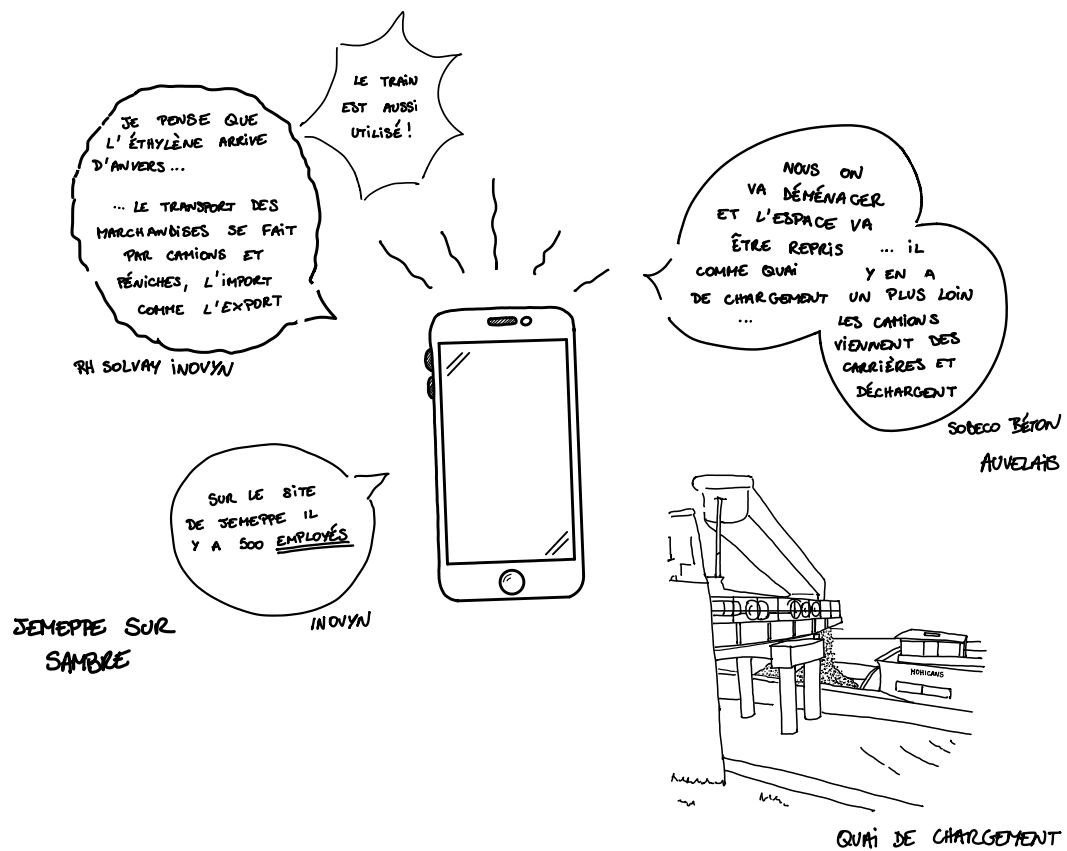 LE TRAIN
EST AUSSI
UTILISÉ!
JE PENSE QUE
L'ÉTHYLÈNE ARRIVE
D'ANVERS...
... LE TRANSPORT DES
MARCHANDISES SE FAIT
PAR CAMIONS ET
PÉNICHES, L'IMPORT
COMME L'EXPORT
RH SOLVAY INOVYN
NOUS ON
VA DÉMÉNAGER
ET L'ESPACE VA
ÊTRE REPRIS
COMME QUAI
DE CHARGEMENT
...
... IL
Y EN A
UN PLUS LOIN
LES CAMIONS
VIENNENT DES
CARRIÈRES ET
DÉCHARGENT
SOBECO BÉTON
AUVELAIS
SUR LE SITE
DE JEMEPPE IL
Y A 500 EMPLOYÉS
INOVYN
JEMEPPE SUR
SAMBRE
MOHICANS
QUAI DE CHARGEMENT